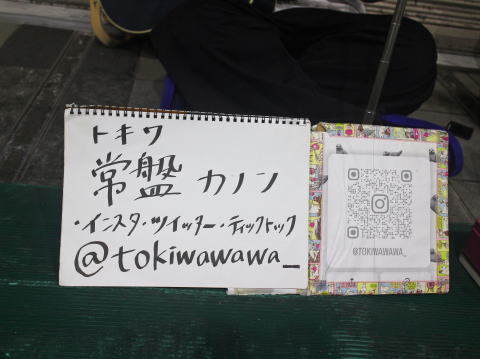 トキワ
常盤 カノン
・インスタ・ツイッター・ティックトック
@tokiwawawa_
@TOKIWAWAWA_